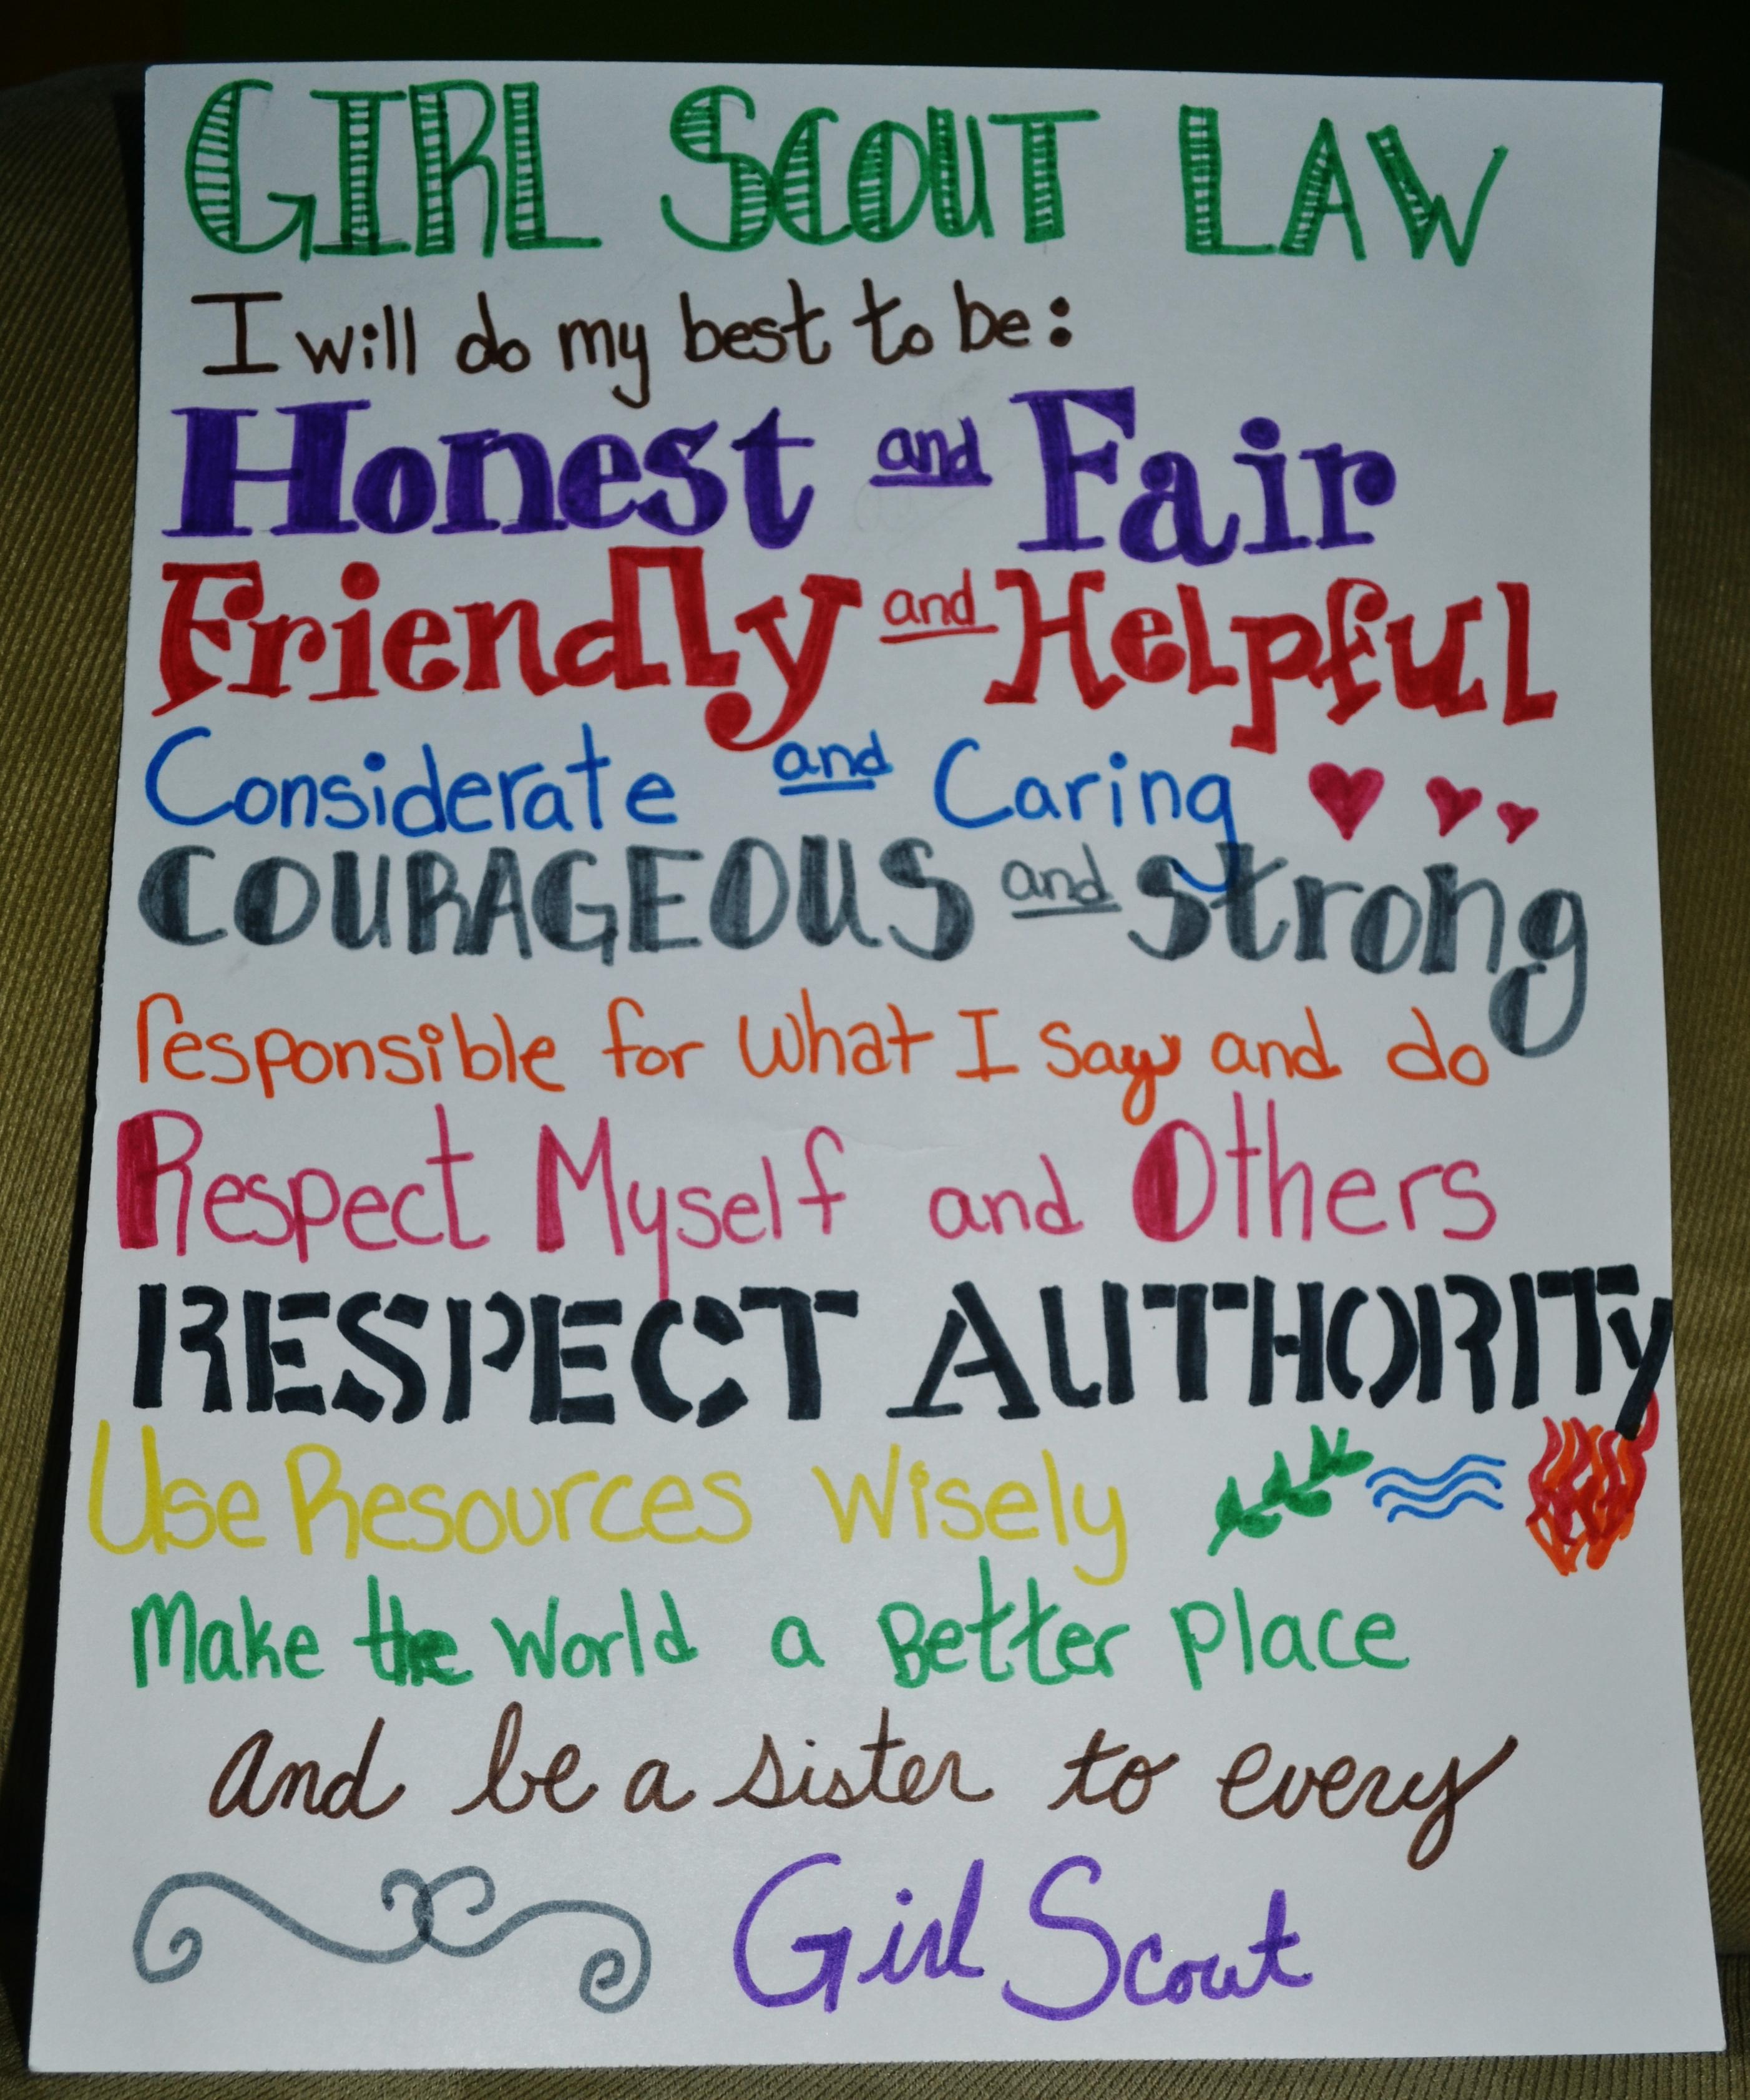 GIRL SCOUT LAW
I will do my best to be:
Honest and Fair
Friendly and Helpful
Considerate and Caring
COURAGEOUS and strong
responsible for what I say and do
Respect Myself and Others
RESPECT AUTHORITY
Use Resources Wisely
Make the World a Better Place
and be a sister to every
Girl Scout